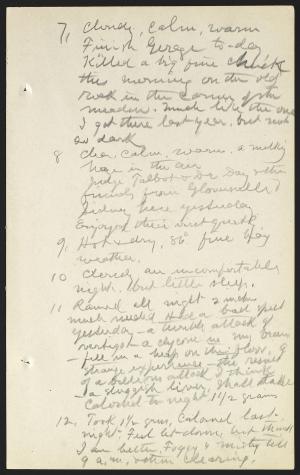 7, Cloudy, calm, warm
Finish Garage to-day
Killed a big fine chuck
this morning on the old
rock in the corner of the
meadow. Much like the one
I got there last year, but not
so dark
8 Clear, calm, warm. a milky
haze in the air
Judge Talbot & Dr Day & their
friends from Gloversville &
Sidney here yesterday
Enjoyed their visit
9, Hot & dry, 86° fine hay
weather.
10 Cloudy an uncomfortable
night. but little sleep.
11 Rained all night 2 inches
much needed. Had a bad spell
yesterday - a terrible attack of
vertigo - a cyclone in my brain
- fell in a heap on the floor, a
strange experience - the result
of a bilious attack I think
- a sluggish liver, Shall take
Calomel to-night 1 1/2 grains
12, Took 1 1/2 grns, Calomel last
night. Feel let down, but think
I am better, Foggy & misty till
9 a.m., then clearing.